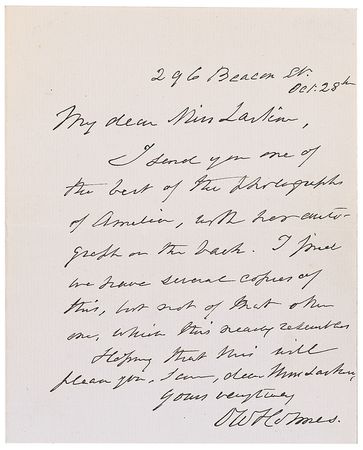 296 Beacon St.
Oct. 28th
My dear Miss Larkin,
I send you one of
the best of the photographs
of Amelia, with her auto-
graph on the back. I find
we have several copies of
this, but not of that other
one, which this nearly resembles
Hoping that this will
please you, I am, dear Miss Larkin,
Yours very truly
O W Holmes.